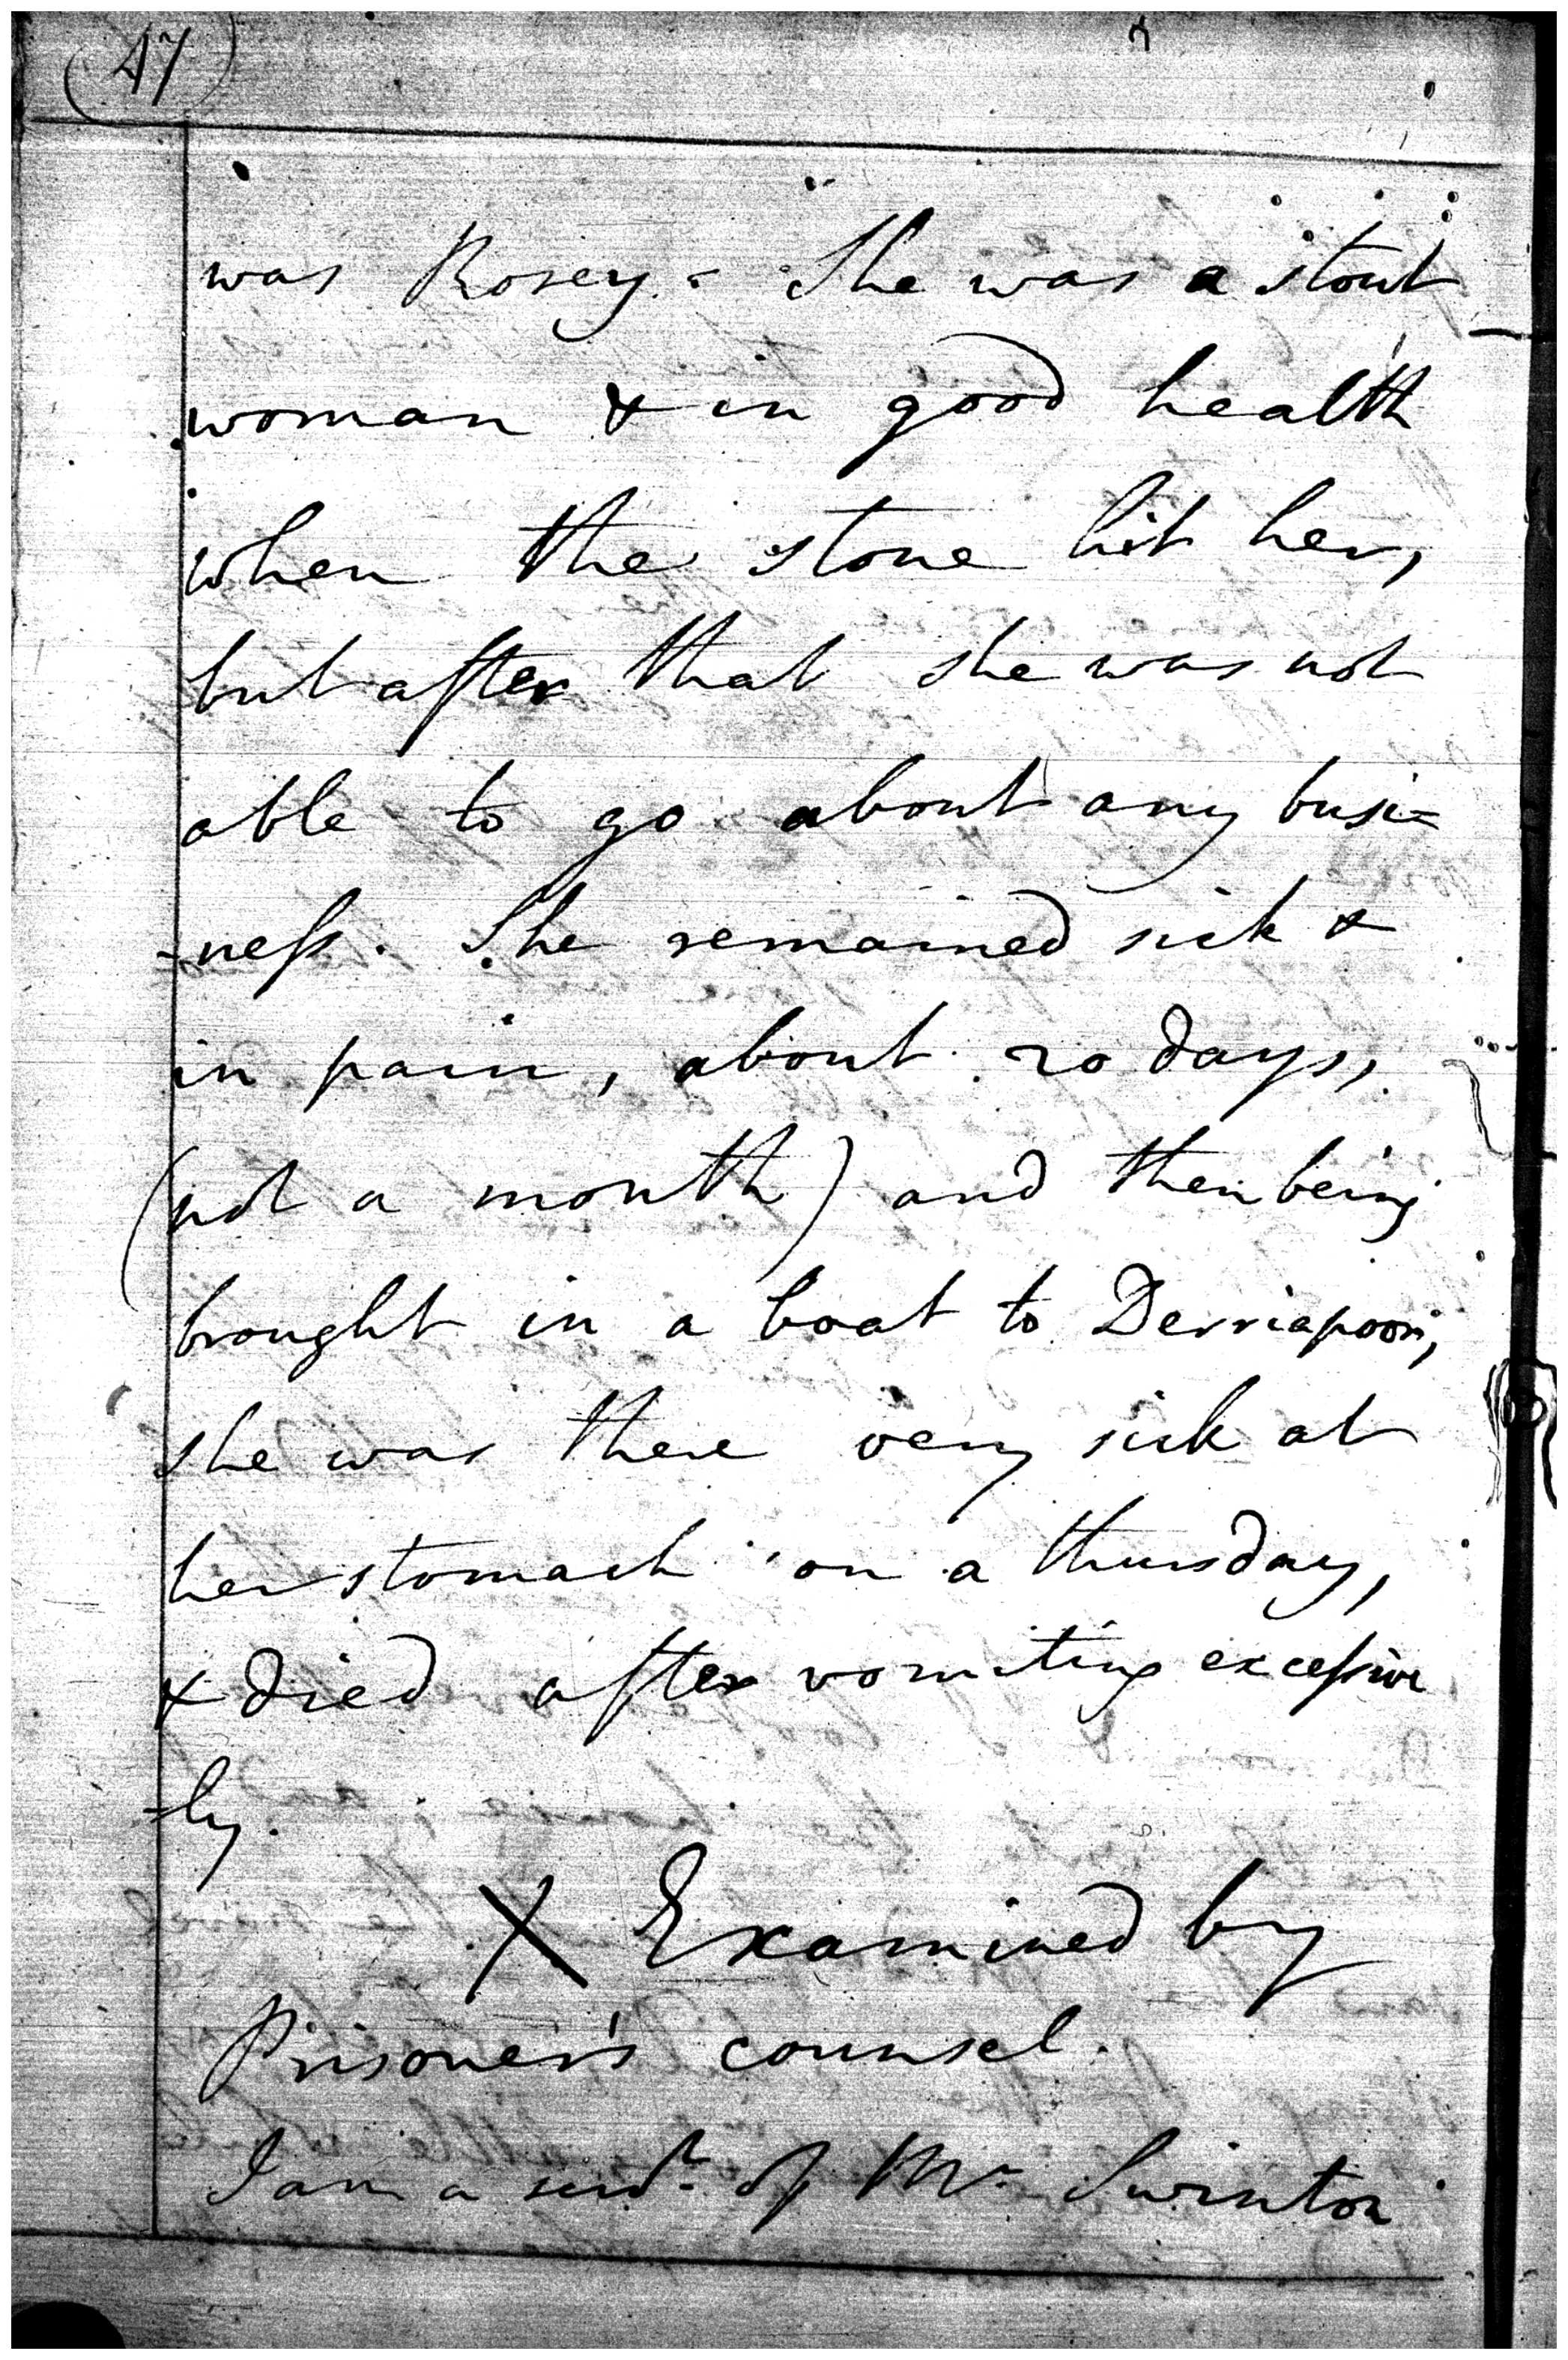 47
was Rosey - She was a stout
woman & in good health
when the stone hit her,
but after that she was not
able to go about any busi=
-neſs. She remained sick &
in pain, about 20 days,
(not a month) and then being
brought in a boat to Derriapoor,
she was there very sick at
her stomach on a thursday,
& died after vomiting exceſsive
-ly.
X Examined by
Prisoner's counsel.
I am a servt. of Mr Swinton